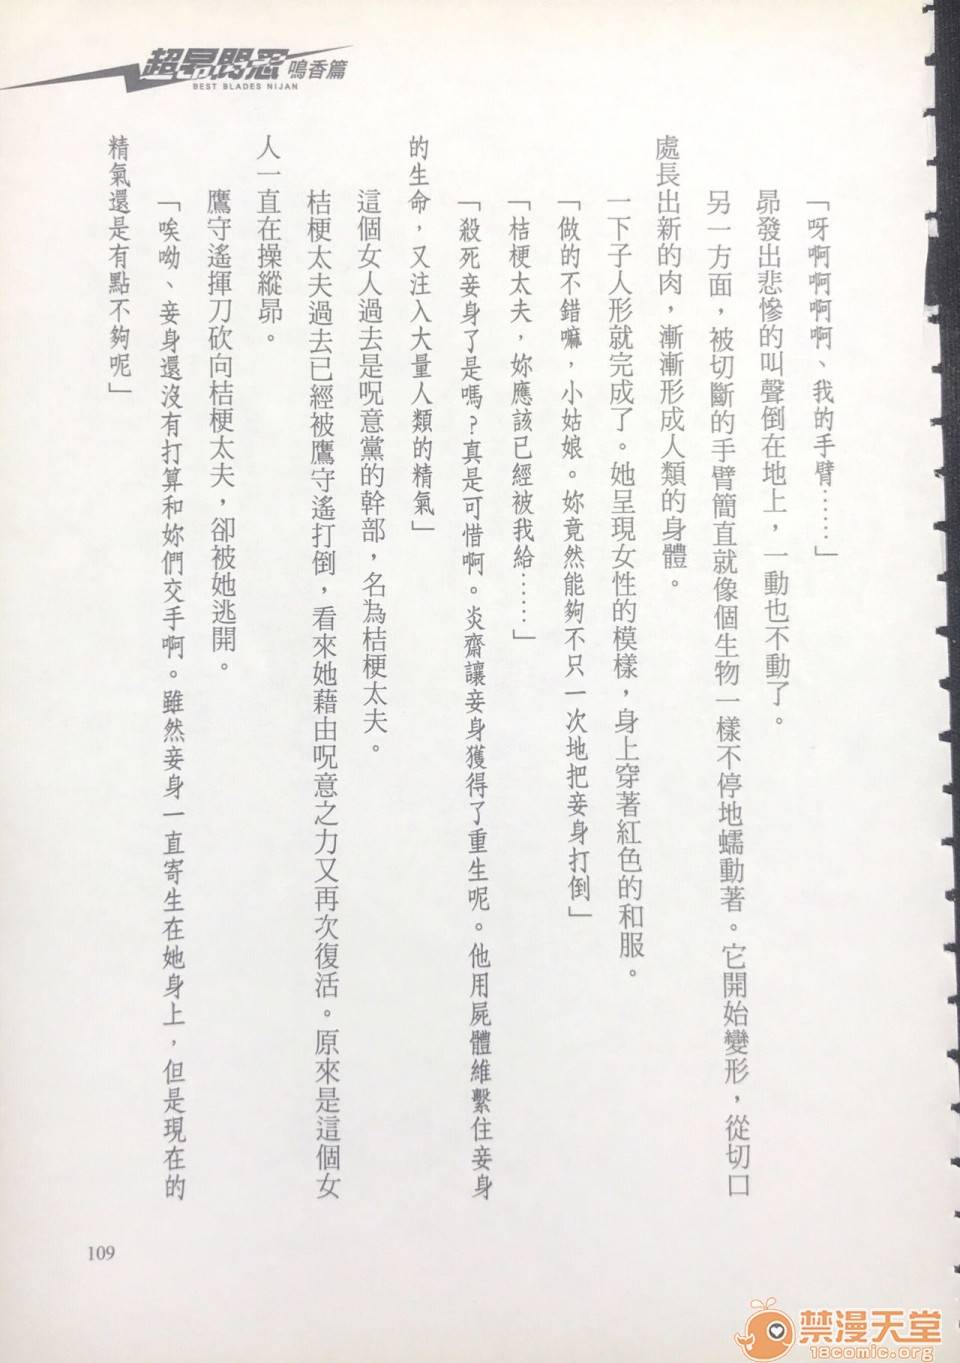 超昴閃忍 鳴香篇
BEST BLADES NIJAN
「呀啊啊啊啊、我的手臂……」
昴發出悲慘的叫聲倒在地上，一動也不動了。
另一方面，被切斷的手臂簡直就像個生物一樣不停地蠕動著。它開始變形，從切口
處長出新的肉，漸漸形成人類的身體。
一下子人形就完成了。她呈現女性的模樣，身上穿著紅色的和服。
「做的不錯嘛，小姑娘。妳竟然能夠不只一次地把妾身打倒」
「桔梗太夫，妳應該已經被我給……」
「殺死妾身了是嗎？真是可惜啊。炎齋讓妾身獲得了重生呢。他用屍體維繫住妾身
的生命，又注入大量人類的精氣」
這個女人過去是呪意黨的幹部，名為桔梗太夫。
桔梗太夫過去已經被鷹守遙打倒，看來她藉由呪意之力又再次復活。原來是這個女
人一直在操縱昴。
鷹守遙揮刀砍向桔梗太夫，卻被她逃開。
「唉呦、妾身還沒有打算和妳們交手啊。雖然妾身一直寄生在她身上，但是現在的
精氣還是有點不夠呢」
109
禁漫天堂
18comic.org